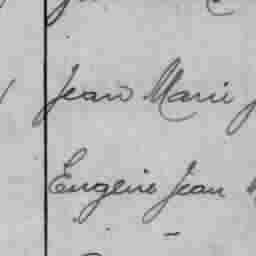 Jean Marie
Eugène Jean